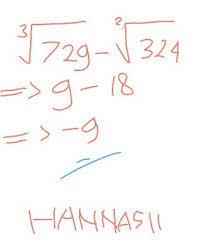 ∛729 - ²√324
=> 9 - 18
=> -9
HANNAS11